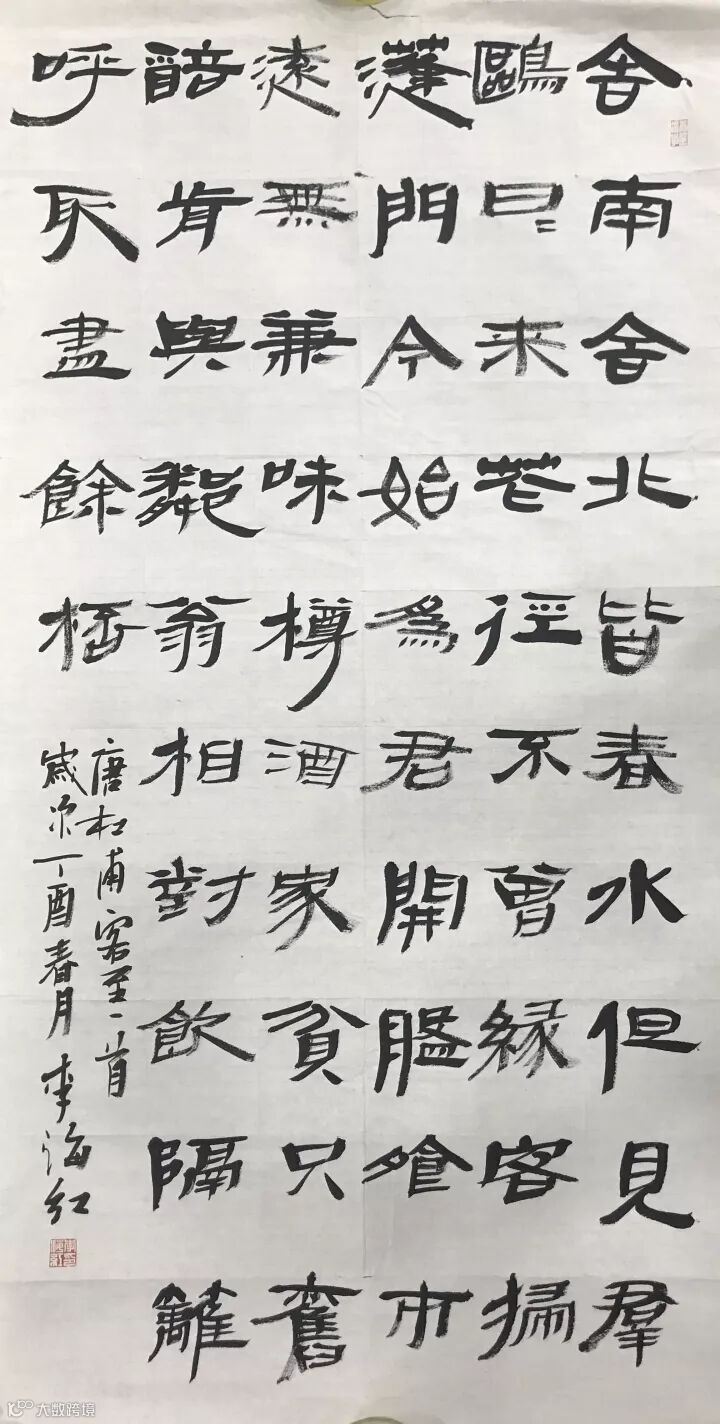 舍南舍北皆春水但見羣
鷗日〻来花徑不曾緣客掃
蓬門今始爲君開盤飧市
遠無兼味樽酒家貧只舊
醅肯與鄰翁相對飲隔籬
呼取盡餘桮
唐杜甫客至一首
歲次丁酉春月李海红
大数跨境